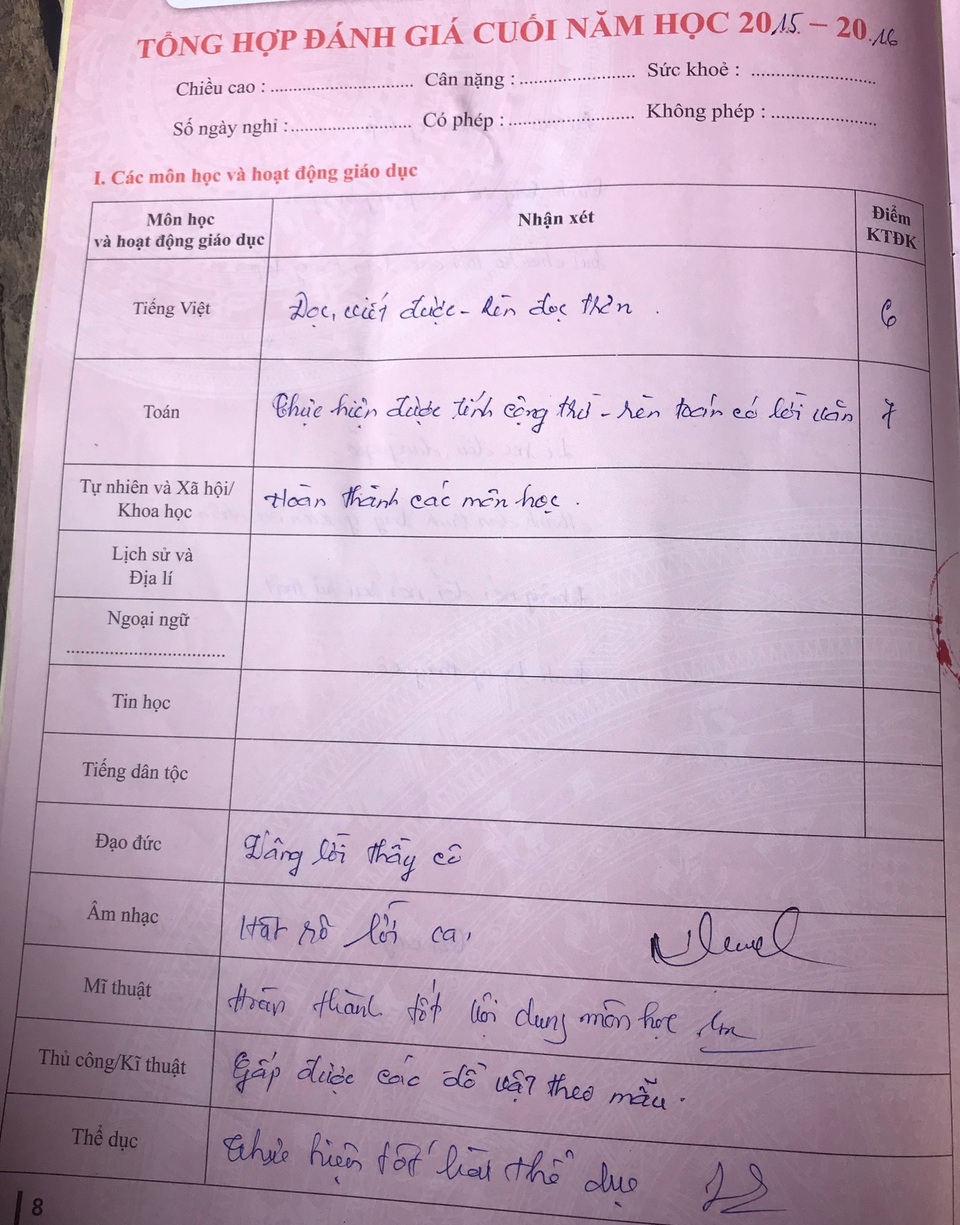 TỔNG HỢP ĐÁNH GIÁ CUỐI NĂM HỌC 2015 – 2016
Chiều cao : .................... Cân nặng : .................... Sức khoẻ : ....................
Số ngày nghỉ : .................... Có phép : .................... Không phép : ....................
I. Các môn học và hoạt động giáo dục
Môn học
và hoạt động giáo dục
Nhận xét
Điểm
KTĐK
Tiếng Việt
Đọc, viết được - rèn đọc thêm .
6
Toán
Thực hiện được tính cộng trừ - rèn toán có lời văn
7
Tự nhiên và Xã hội/
Khoa học
Hoàn thành các môn học .
Lịch sử và
Địa lí
Ngoại ngữ
....................
Tin học
Tiếng dân tộc
Đạo đức
Vâng lời thầy cô
Âm nhạc
Hát rõ lời ca,
Mĩ thuật
Hoàn thành tốt nội dung môn học
Thủ công/Kĩ thuật
Gấp được các đồ vật theo mẫu .
Thể dục
Thực hiện tốt bài thể dục
8